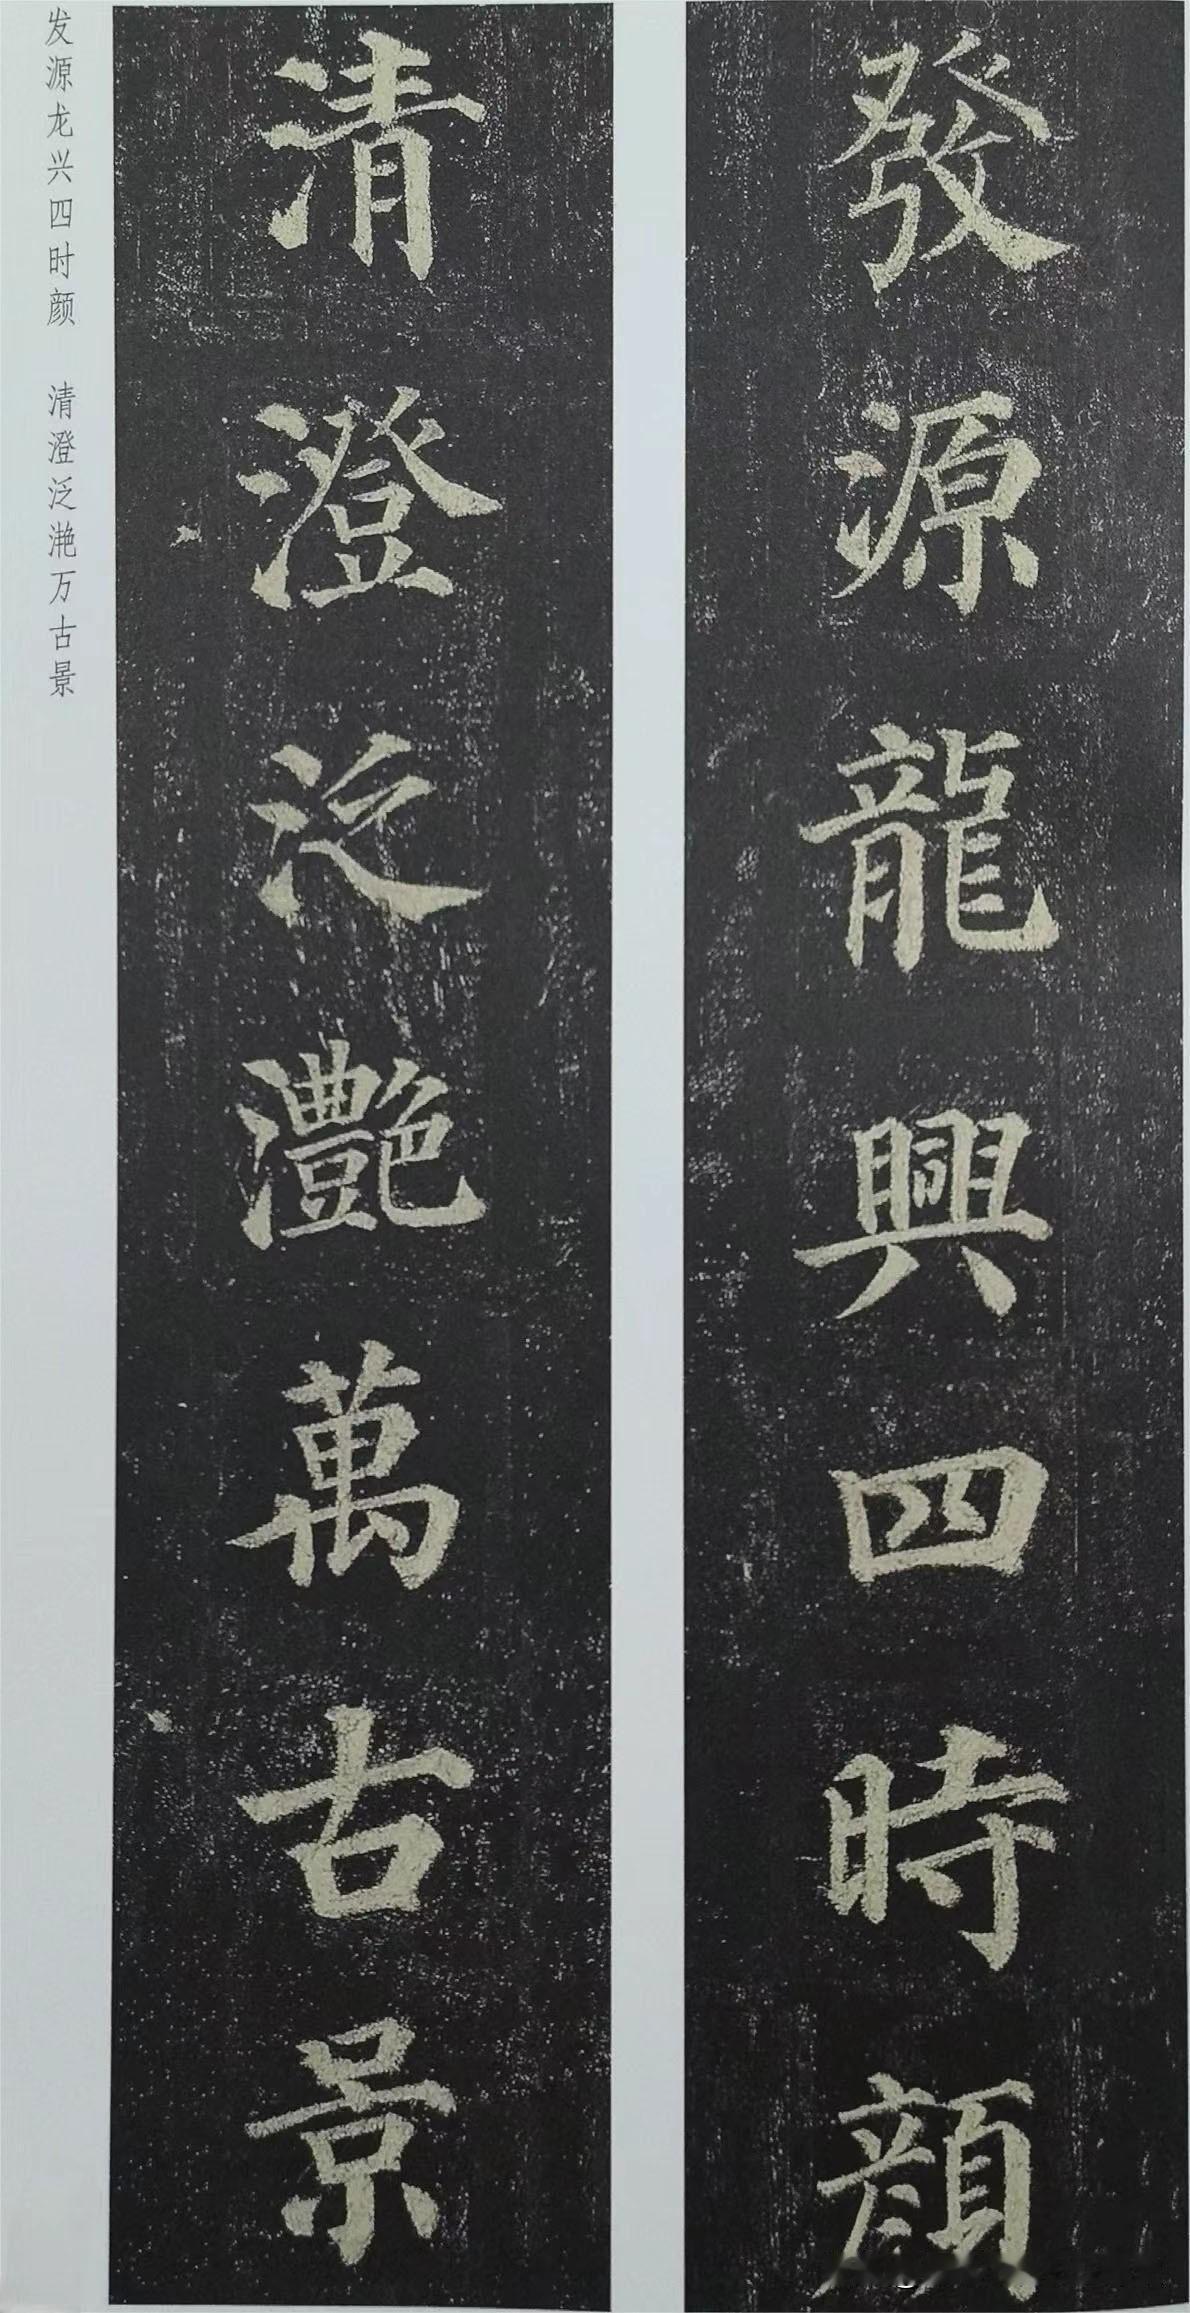 發源龍興四時顏
清澄泛灩萬古景
发源龙兴四时颜 清澄泛滟万古景